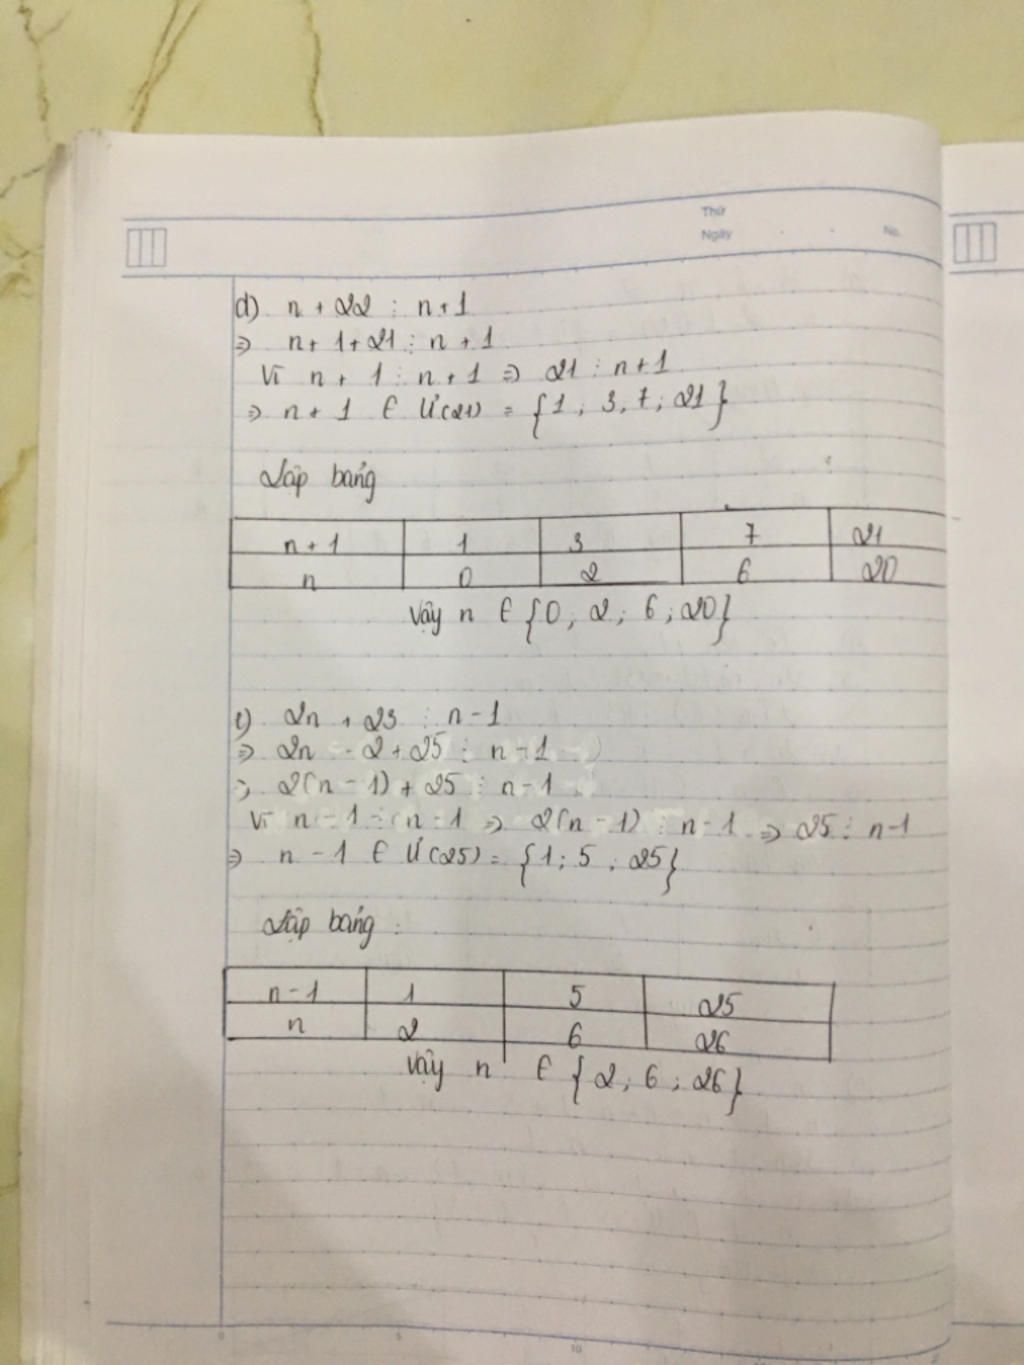 Thứ
Ngày No.
d) n + 22 ⋮ n+1
⇒ n+ 1+21 ⋮ n + 1
Vì n + 1 ⋮ n+1 ⇒ 21 ⋮ n+1
⇒ n+ 1 ∈ Ư(21) = {1; 3, 7; 21}
Lập bảng
n+1 1 3 7 21
n 0 2 6 20
Vậy n ∈ {0; 2; 6; 20}
e) 2n + 23 ⋮ n-1
⇒ 2n - 2 + 25 ⋮ n-1
⇒ 2(n-1) + 25 ⋮ n-1
Vì n-1 ⋮ n-1 ⇒ 2(n-1) ⋮ n-1 ⇒ 25 ⋮ n-1
⇒ n-1 ∈ Ư(25) = {1; 5; 25}
Lập bảng :
n-1 1 5 25
n 2 6 26
Vậy n ∈ {2; 6; 26}
0 5 10